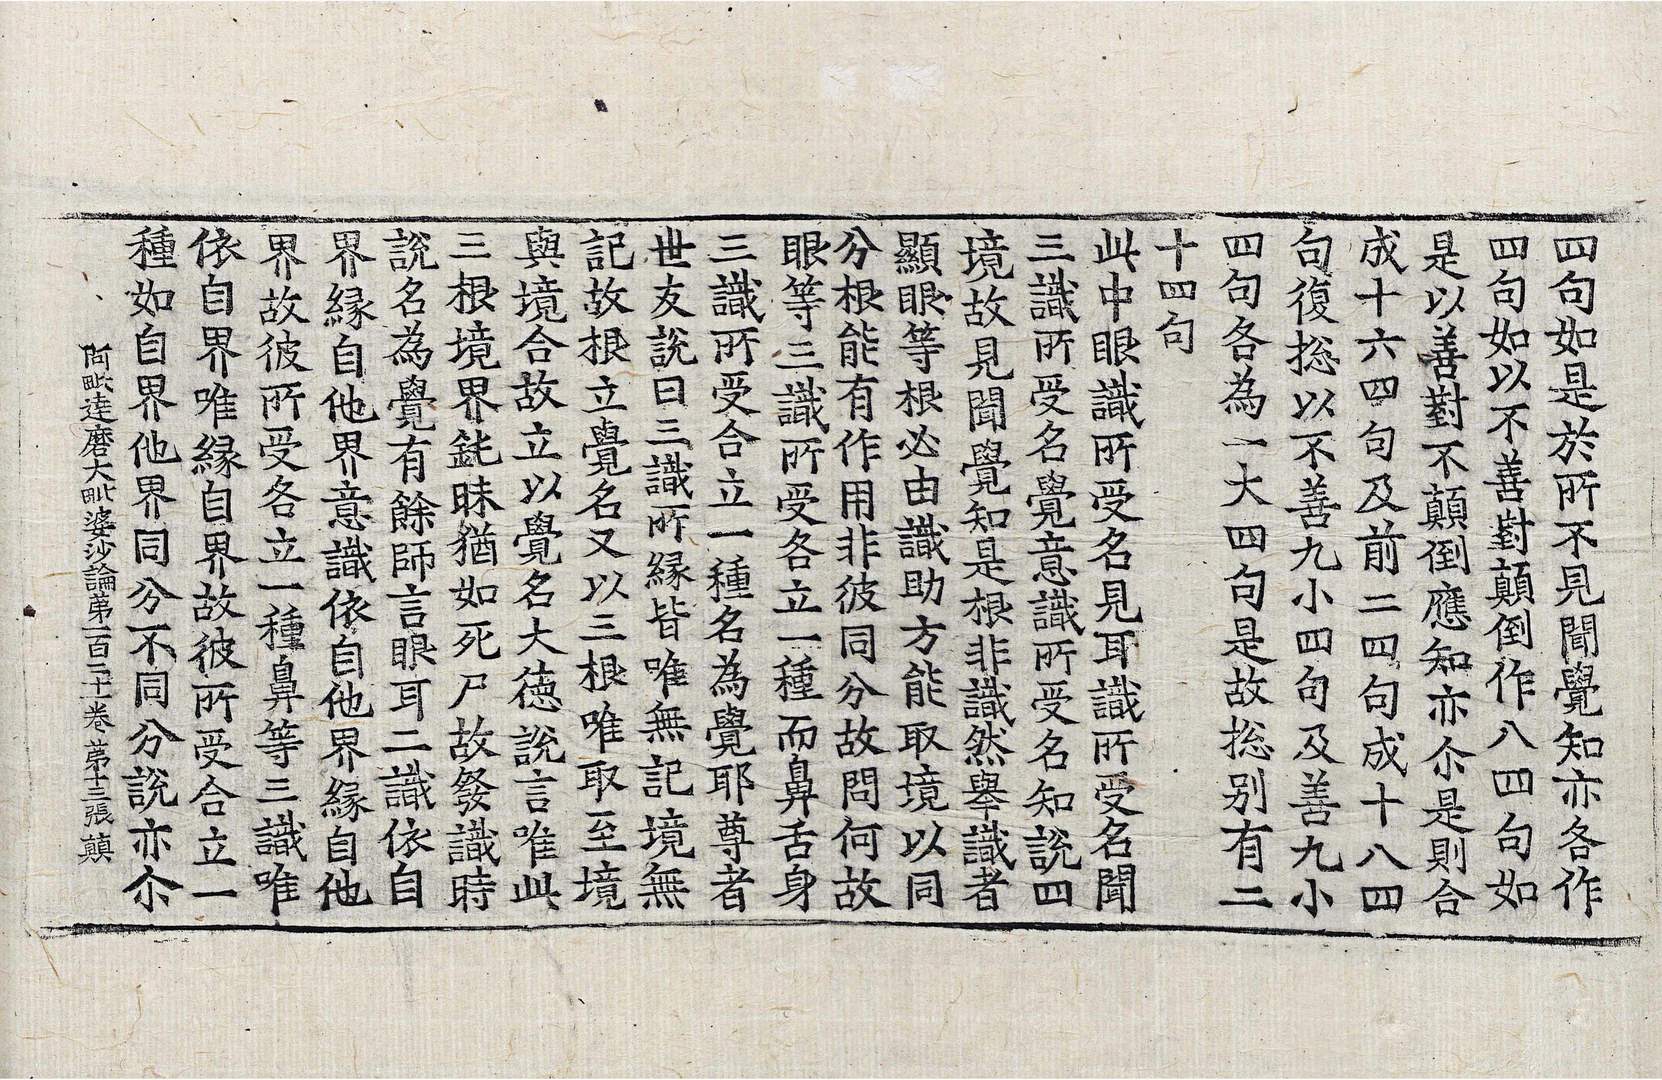 四句如是於所不見聞覺知亦各作
四句如以不善對顛倒作八四句如
是以善對不顛倒應知亦尒是則合
成十六四句及前二四句成十八四
句復捴以不善九小四句及善九小
四句各為一大四句是故捴别有二
十四句
此中眼識所受名見耳識所受名聞
三識所受名覺意識所受名知說四
境故見聞覺知是根非識然舉識者
顯眼等根必由識助方能取境以同
分根能有作用非彼同分故問何故
眼等三識所受各立一種而鼻舌身
三識所受合立一種名為覺耶尊者
世友說曰三識所縁皆唯無記境無
記故根立覺名又以三根唯取至境
與境合故立以覺名大徳說言唯此
三根境界鈍昧猶如死尸故發識時
說名為覺有餘師言眼耳二識依自
界縁自他界意識依自他界縁自他
界故彼所受各立一種鼻等三識唯
依自界唯縁自界故彼所受合立一
種如自界他界同分不同分說亦尒
阿毗達磨大毗婆沙論第一百二十一卷 第十三張 顛